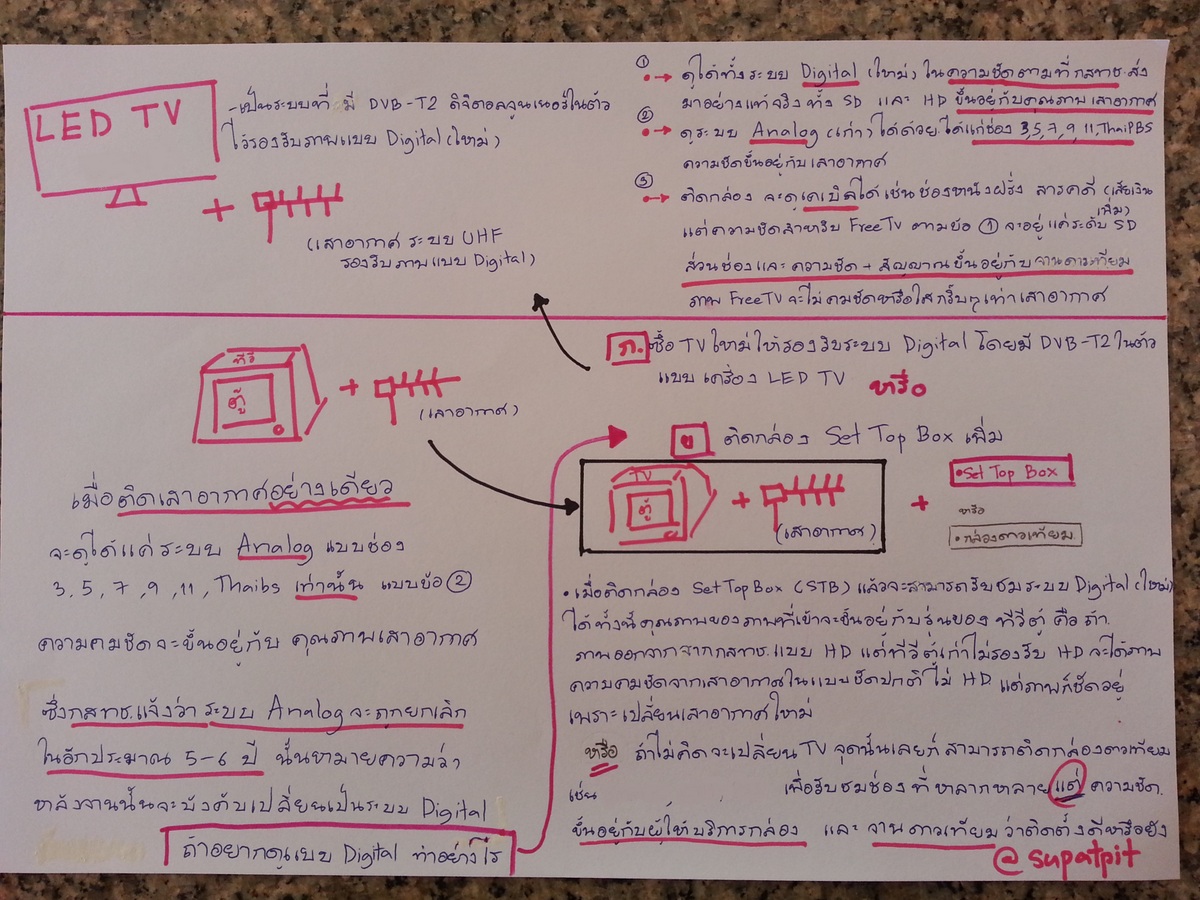 LED TV
-เป็นระบบที่ มี DVB-T2 ดิจิตอลจูนเนอร์ในตัว
ไว้รองรับภาพแบบ Digital (ใหม่)
+
(เสาอากาศ ระบบ UHF
รองรับภาพแบบ Digital)
① → ดูได้ทั้งระบบ Digital (ใหม่) ในความชัดตามที่กสทช.ส่ง
มาอย่างแท้จริง ทั้ง SD และ HD ขึ้นอยู่กับคุณภาพเสาอากาศ
② → ดูระบบ Analog (เก่า) ได้ด้วย ได้แก่ช่อง 3,5,7,9,11,ThaiPBS
ความชัดขึ้นอยู่กับเสาอากาศ
③ → ติดกล่อง จะดูเคเบิลได้ เช่นช่องหนังฝรั่ง สารคดี (เสียเงินเพิ่ม)
แต่ความชัดสำหรับ FreeTv ตามข้อ ① จะอยู่แค่ระดับ SD
ส่วนช่องและความชัด + สัญญาณขึ้นอยู่กับจานดาวเทียม
ภาพ FreeTV จะไม่คมชัดหรือใสกริ๊บๆเท่าเสาอากาศ
ก. ซื้อ TV ใหม่ให้รองรับระบบ Digital โดยมี DVB-T2 ในตัว
แบบ เครื่อง LED TV หรือ
ข ติดกล่อง Set Top Box เพิ่ม
ทีวี
ตู้
+
(เสาอากาศ)
TV
ตู้
+
(เสาอากาศ)
+
•Set Top Box
หรือ
•กล่องดาวเทียม
เมื่อติดเสาอากาศอย่างเดียว
จะดูได้แค่ระบบ Analog แบบช่อง
3, 5, 7, 9, 11, Thaibs เท่านั้น แบบข้อ ②
ความคมชัดจะขึ้นอยู่กับ คุณภาพเสาอากาศ
ซึ่งกสทช.แจ้งว่า ระบบ Analog จะถูกยกเลิก
ในอีกประมาณ 5-6 ปี นั้นหมายความว่า
หลังจากนั้นจะบังคับเปลี่ยนเป็นระบบ Digital
ถ้าอยากดูแบบ Digital ทำอย่างไร
• เมื่อติดกล่อง Set Top Box (STB) แล้วจะสามารถรับชมระบบ Digital (ใหม่)
ได้ ทั้งนี้คุณภาพของภาพที่เข้าจะขึ้นอยู่กับรุ่นของ ทีวีตู้ คือ ถ้า
ภาพออกจากจากกสทช. แบบ HD แต่ทีวีตู้เก่าไม่รองรับ HD จะได้ภาพ
ความคมชัดจากเสาอากาศในแบบชัดปกติ ไม่ HD แต่ภาพก็ชัดอยู่
เพราะเปลี่ยนเสาอากาศใหม่
หรือ ถ้าไม่คิดจะเปลี่ยน TV จุดนั้นเลยก็ สามารถติดกล่องดาวเทียม
เช่น เพื่อรับชมช่อง ที่ หลากหลาย แต่ ความชัด
ขึ้นอยู่กับผู้ให้บริการกล่อง และ จานดาวเทียม ว่าติดตั้งดีหรือยัง
@supatpit